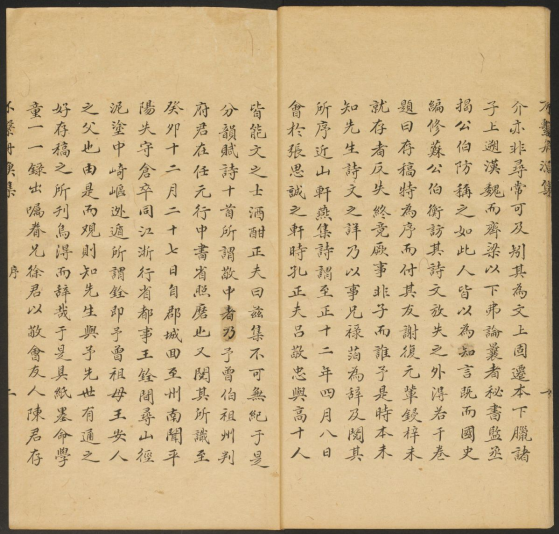 介亦非尋常可及矧其為文上固遷本下臘諸
子上遡漢魏而齊梁以下弗論曩者秘書監丞
揭公伯防稱之如此人皆以為知言既而國史
編修蘇公伯衡訪其詩文放失之外得若干卷
題曰存稿特為序而付其友謝復元輩鋟梓未
就存者反失終竟厥事非子而誰予是時本未
知先生詩文之詳乃以事兄祿蒞為辭及閱其
所序近山軒燕集詩謂至正十二年四月八日
會於張思誠之軒時孔正夫呂敬忠與高十人
皆能文之士酒酣正夫曰茲集不可無紀于是
分韻賦詩十首所謂敬中者乃予曾伯祖州判
府君在任元行中書省照磨也又閱其所識至
癸卯十二月二十七日自郡城回至州南闤平
陽失守倉卒同江浙行省都事王銓間尋山徑
泥塗中崎嶇逃遁所謂銓即予曾祖母王安人
之父也由是而觀則知先生與予先世有通之
好存稿之所刋烏得而辭哉于是具紙墨命學
童一一錄出囑眷兄徐君以敬會友人陳君存
不繫舟漁集
序